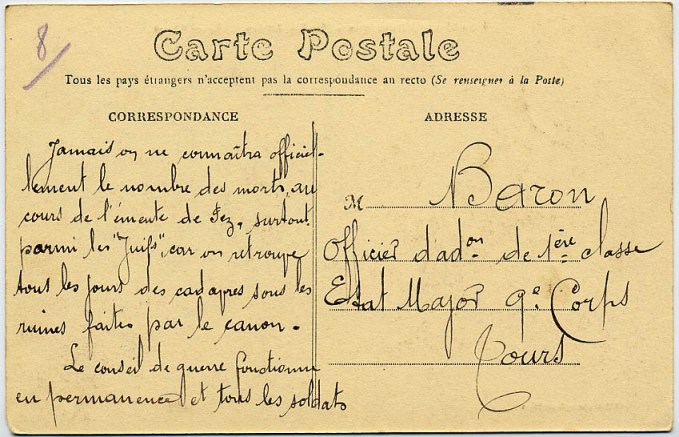 8
Carte Postale
Tous les pays étrangers n'acceptent pas la correspondance au recto (Se renseigner à la Poste)
CORRESPONDANCE
ADRESSE
Jamais on ne connaîtra officiel-
lement le nombre des morts, au
cours de l'émeute de Fez, surtout
parmi les "Juifs", car on retrouve
tous les jours des cadavres sous les
ruines faites par le canon.
Le conseil de guerre fonctionne
en permanence et tous les soldats
M Baron
Officier d'adon de 1ère classe
Etat Major 9e Corps
Tours